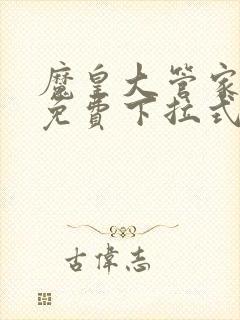 魔皇大管家
免費下拉式
古偉志